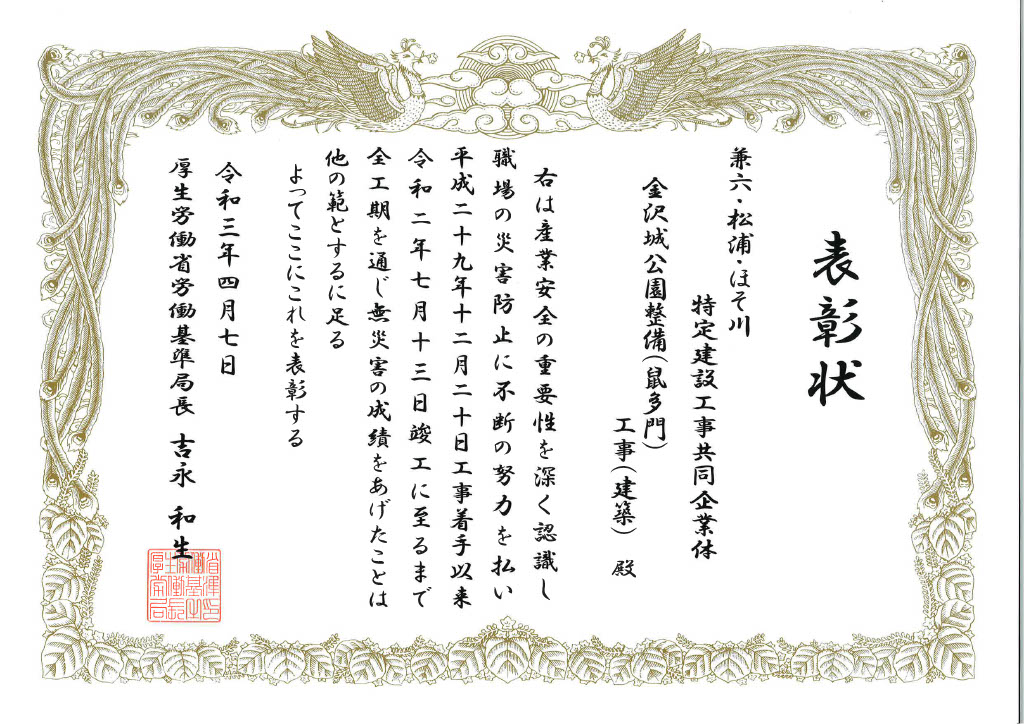 表彰状
兼六・松浦・ほそ川
特定建設工事共同企業体
金沢城公園整備(鼠多門)
工事(建築) 殿
右は産業安全の重要性を深く認識し
職場の災害防止に不断の努力を払い
平成二十九年十二月二十日工事着手以来
令和二年七月十三日竣工に至るまで
全工期を通じ無災害の成績をあげたことは
他の範とするに足る
よってここにこれを表彰する
令和三年四月七日
厚生労働省労働基準局長 吉永 和生